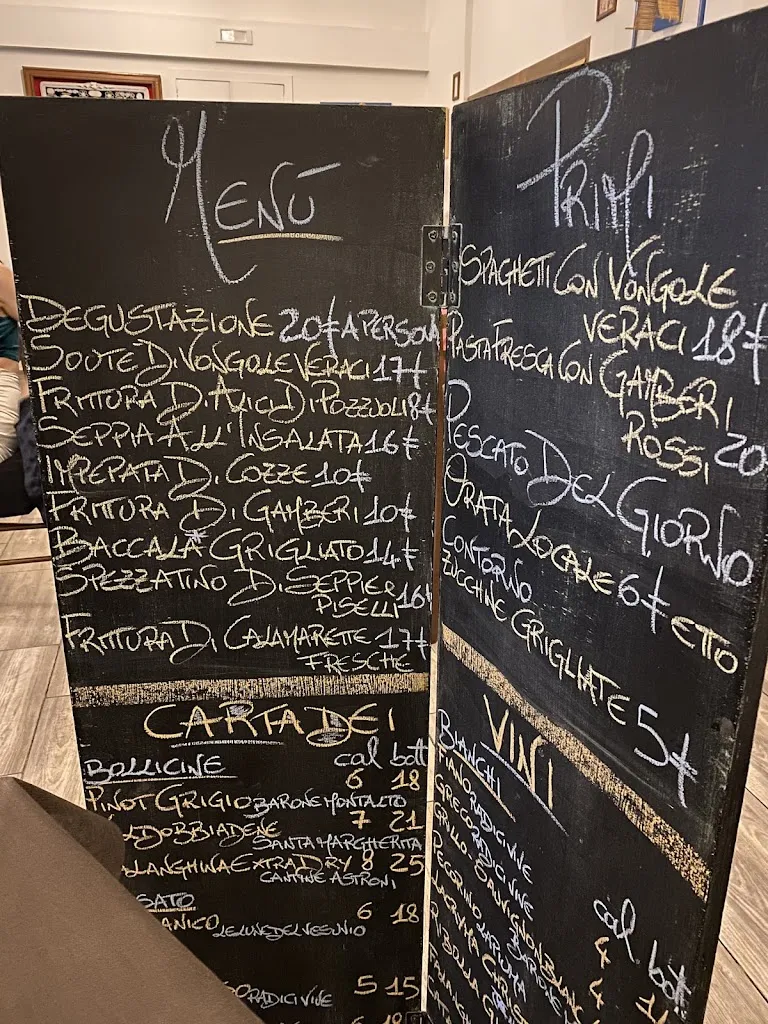 Menù
Degustazione 20€ a persona
Soutè Di Vongole Veraci 17€
Frittura Di Alici Di Pozzuoli 8€
Seppia All'Insalata 16€
Impepata Di Cozze 10€
Frittura Di Gamberi 10€
Baccalà Grigliato 14€
Spezzatino Di Seppie e
Piselli 16
Frittura Di Calamarette 17€
Fresche
Carta Dei
Bollicine cal bott
6 18
Pinot Grigio Barone Montalto
7 21
Valdobbiadene
Santa Margherita
Falanghina Extra Dry 8 25
Cantine Astroni
6 18
Le Lune del Vesuvio
Radici Vive 5 15
6 18
Primi
Spaghetti Con Vongole
Veraci 18€
Pasta Fresca Con Gamberi
Rossi 20
Pescato Del Giorno
Orata Locale 6€ etto
Contorno
Zucchine Grigliate 5€
Vini
Bianchi cal bott
Fiano Radici Vive 4
Greco Radici Vive 4
Grillo-Sauvignon Blanc
Barone
Pecorino
Lacryma Christi
Ribolla